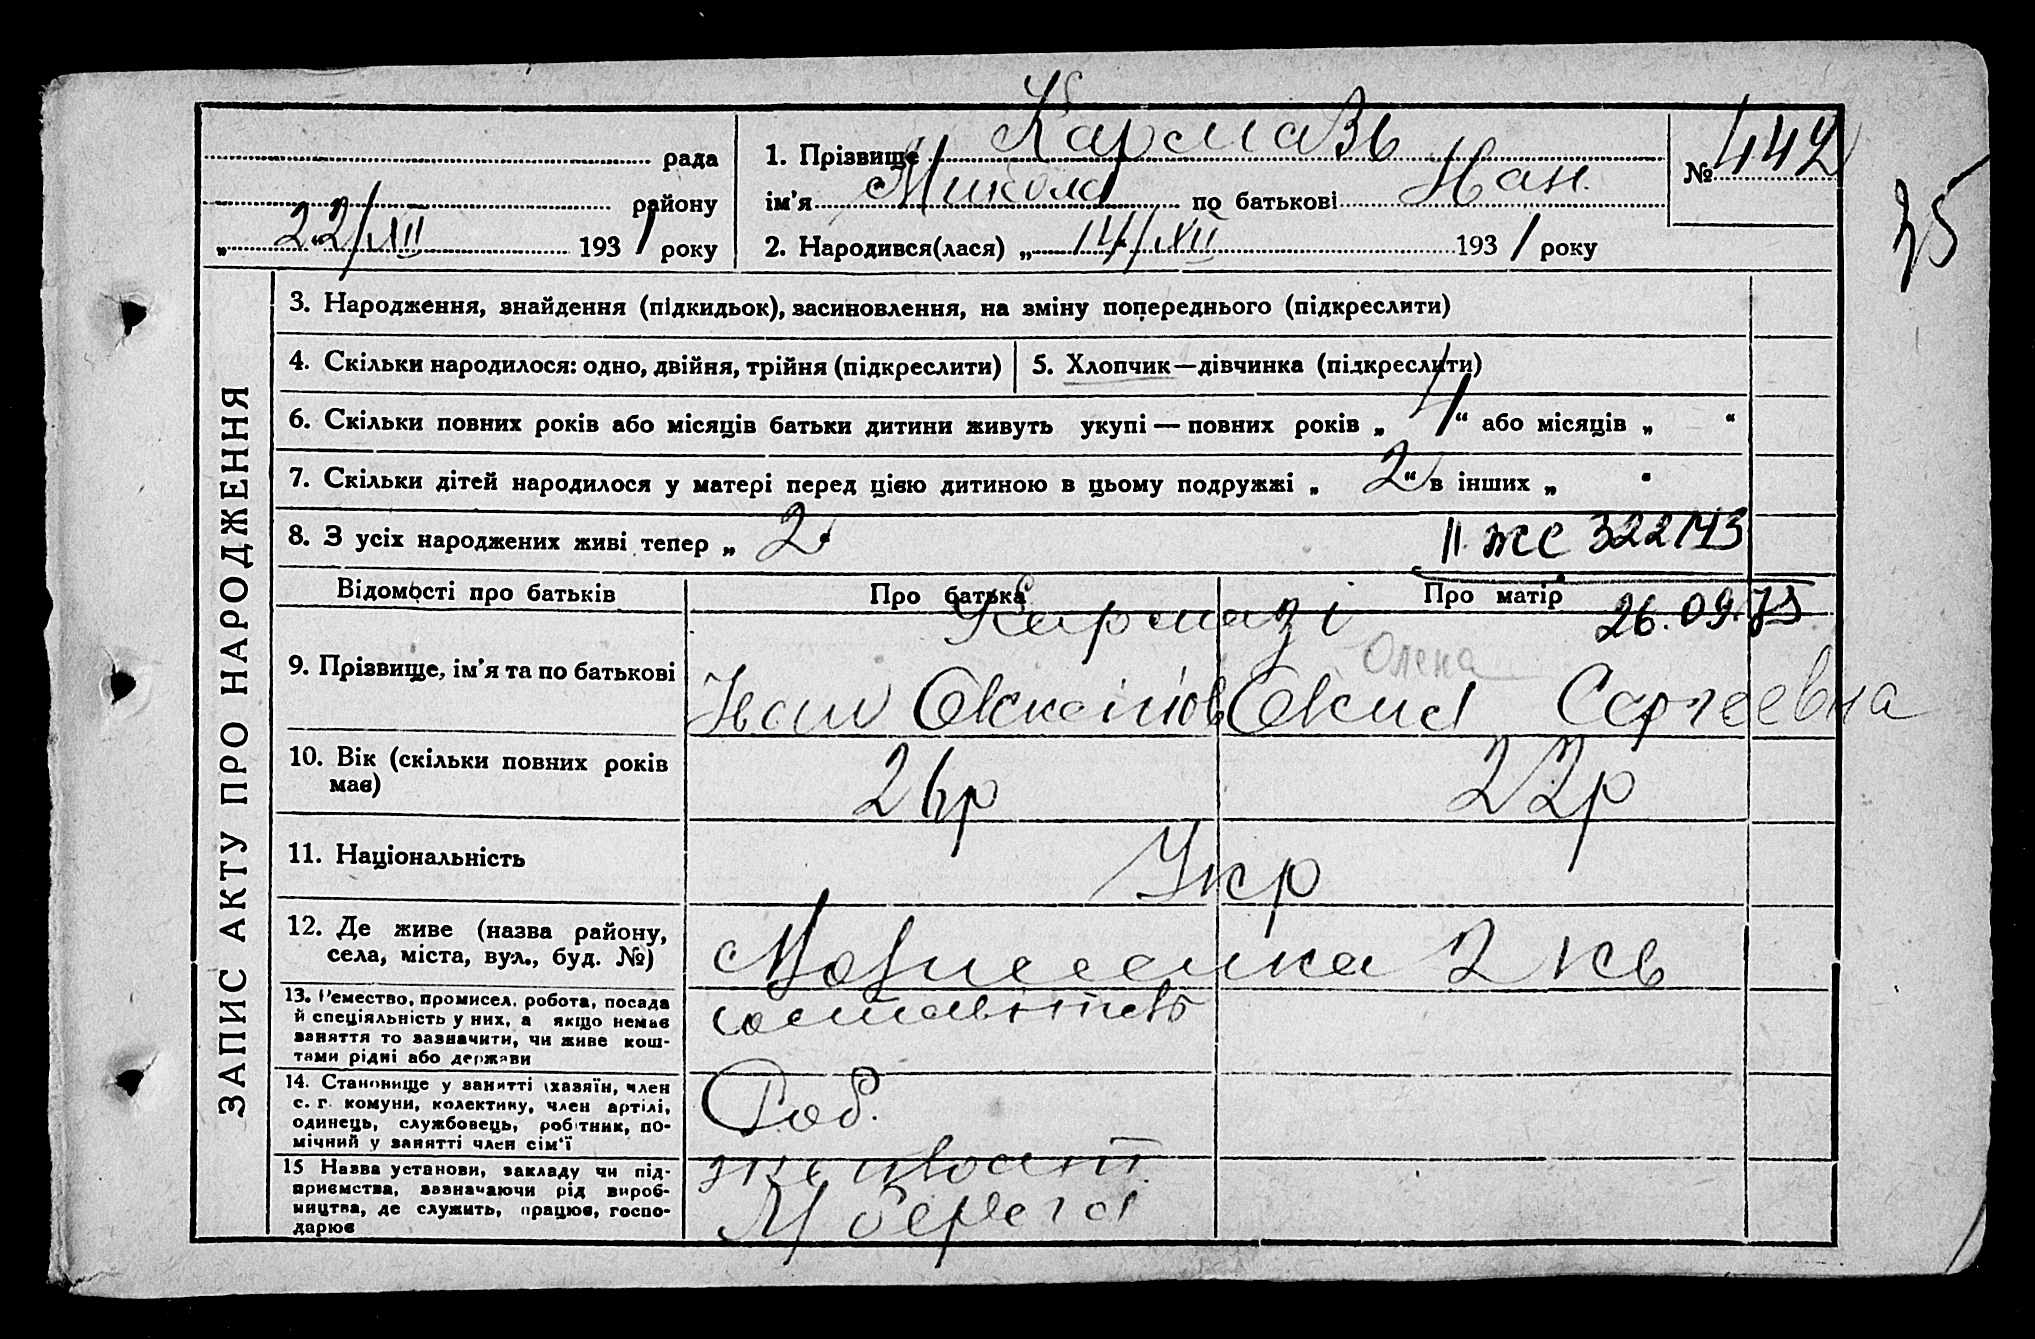 рада
району
„ 22/XII 1931 року
1. Прізвище Кармазь
ім'я Микола по батькові Иван.
2. Народився(лася) „ 14/XII 1931 року
№ 442
35
ЗАПИС АКТУ ПРО НАРОДЖЕННЯ
3. Народження, знайдення (підкидьок), засиновлення, на зміну попереднього (підкреслити)
4. Скільки народилося: одно, двійня, трійня (підкреслити)
5. Хлопчик—дівчинка (підкреслити)
6. Скільки повних років або місяців батьки дитини живуть укупі — повних років „ 4 “ або місяців „ “
7. Скільки дітей народилося у матері перед цією дитиною в цьому подружжі „ 2 “ в інших „ “
8. З усіх народжених живі тепер „ 2
II ЖС 322143
26.09.75
Відомості про батьків
Про батька
Про матір
Кармазі
Олена
9. Прізвище, ім'я та по батькові
Иван
Сергеевна
10. Вік (скільки повних років має)
26р
22р
11. Національність
Укр
12. Де живе (назва району,
села, міста, вул., буд. №)
2 кв
13. Ремество, промисел, робота, посада
й спеціяльність у них, а якщо немає
заняття то зазначити, чи живе кош-
тами рідні або держави
14. Становище у занятті (хазяїн, член
с. г. комуни, колективу, член артілі,
одинець, службовець, робітник, по-
мічний у занятті член сім'ї
Роб.
15 Назва установи, закладу чи під-
приємства, зазначаючи рід вироб-
ництва, де служить, працює, госпо-
дарює